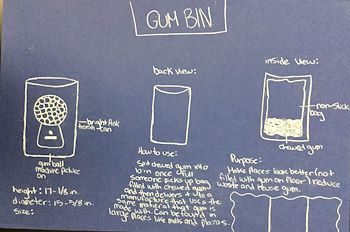 GUM BIN
back view:
inside view:
bright Pink
trash can
non-slick
bag
gumball
machine picture
on
chewed gum
height: 17-1/8 in.
diameter: 15-5/8 in.
size:
How to use:
Spit chewed gum into
bin once full
someone picks up bag
filled with chewed gum
and then delivers it to a
manufacture that uses the
same material that gum is
made with. Can be found in
large places like malls and plazas.
Purpose:
Make places look better (not
filled with gum on floor) reduce
waste and reuse gum.